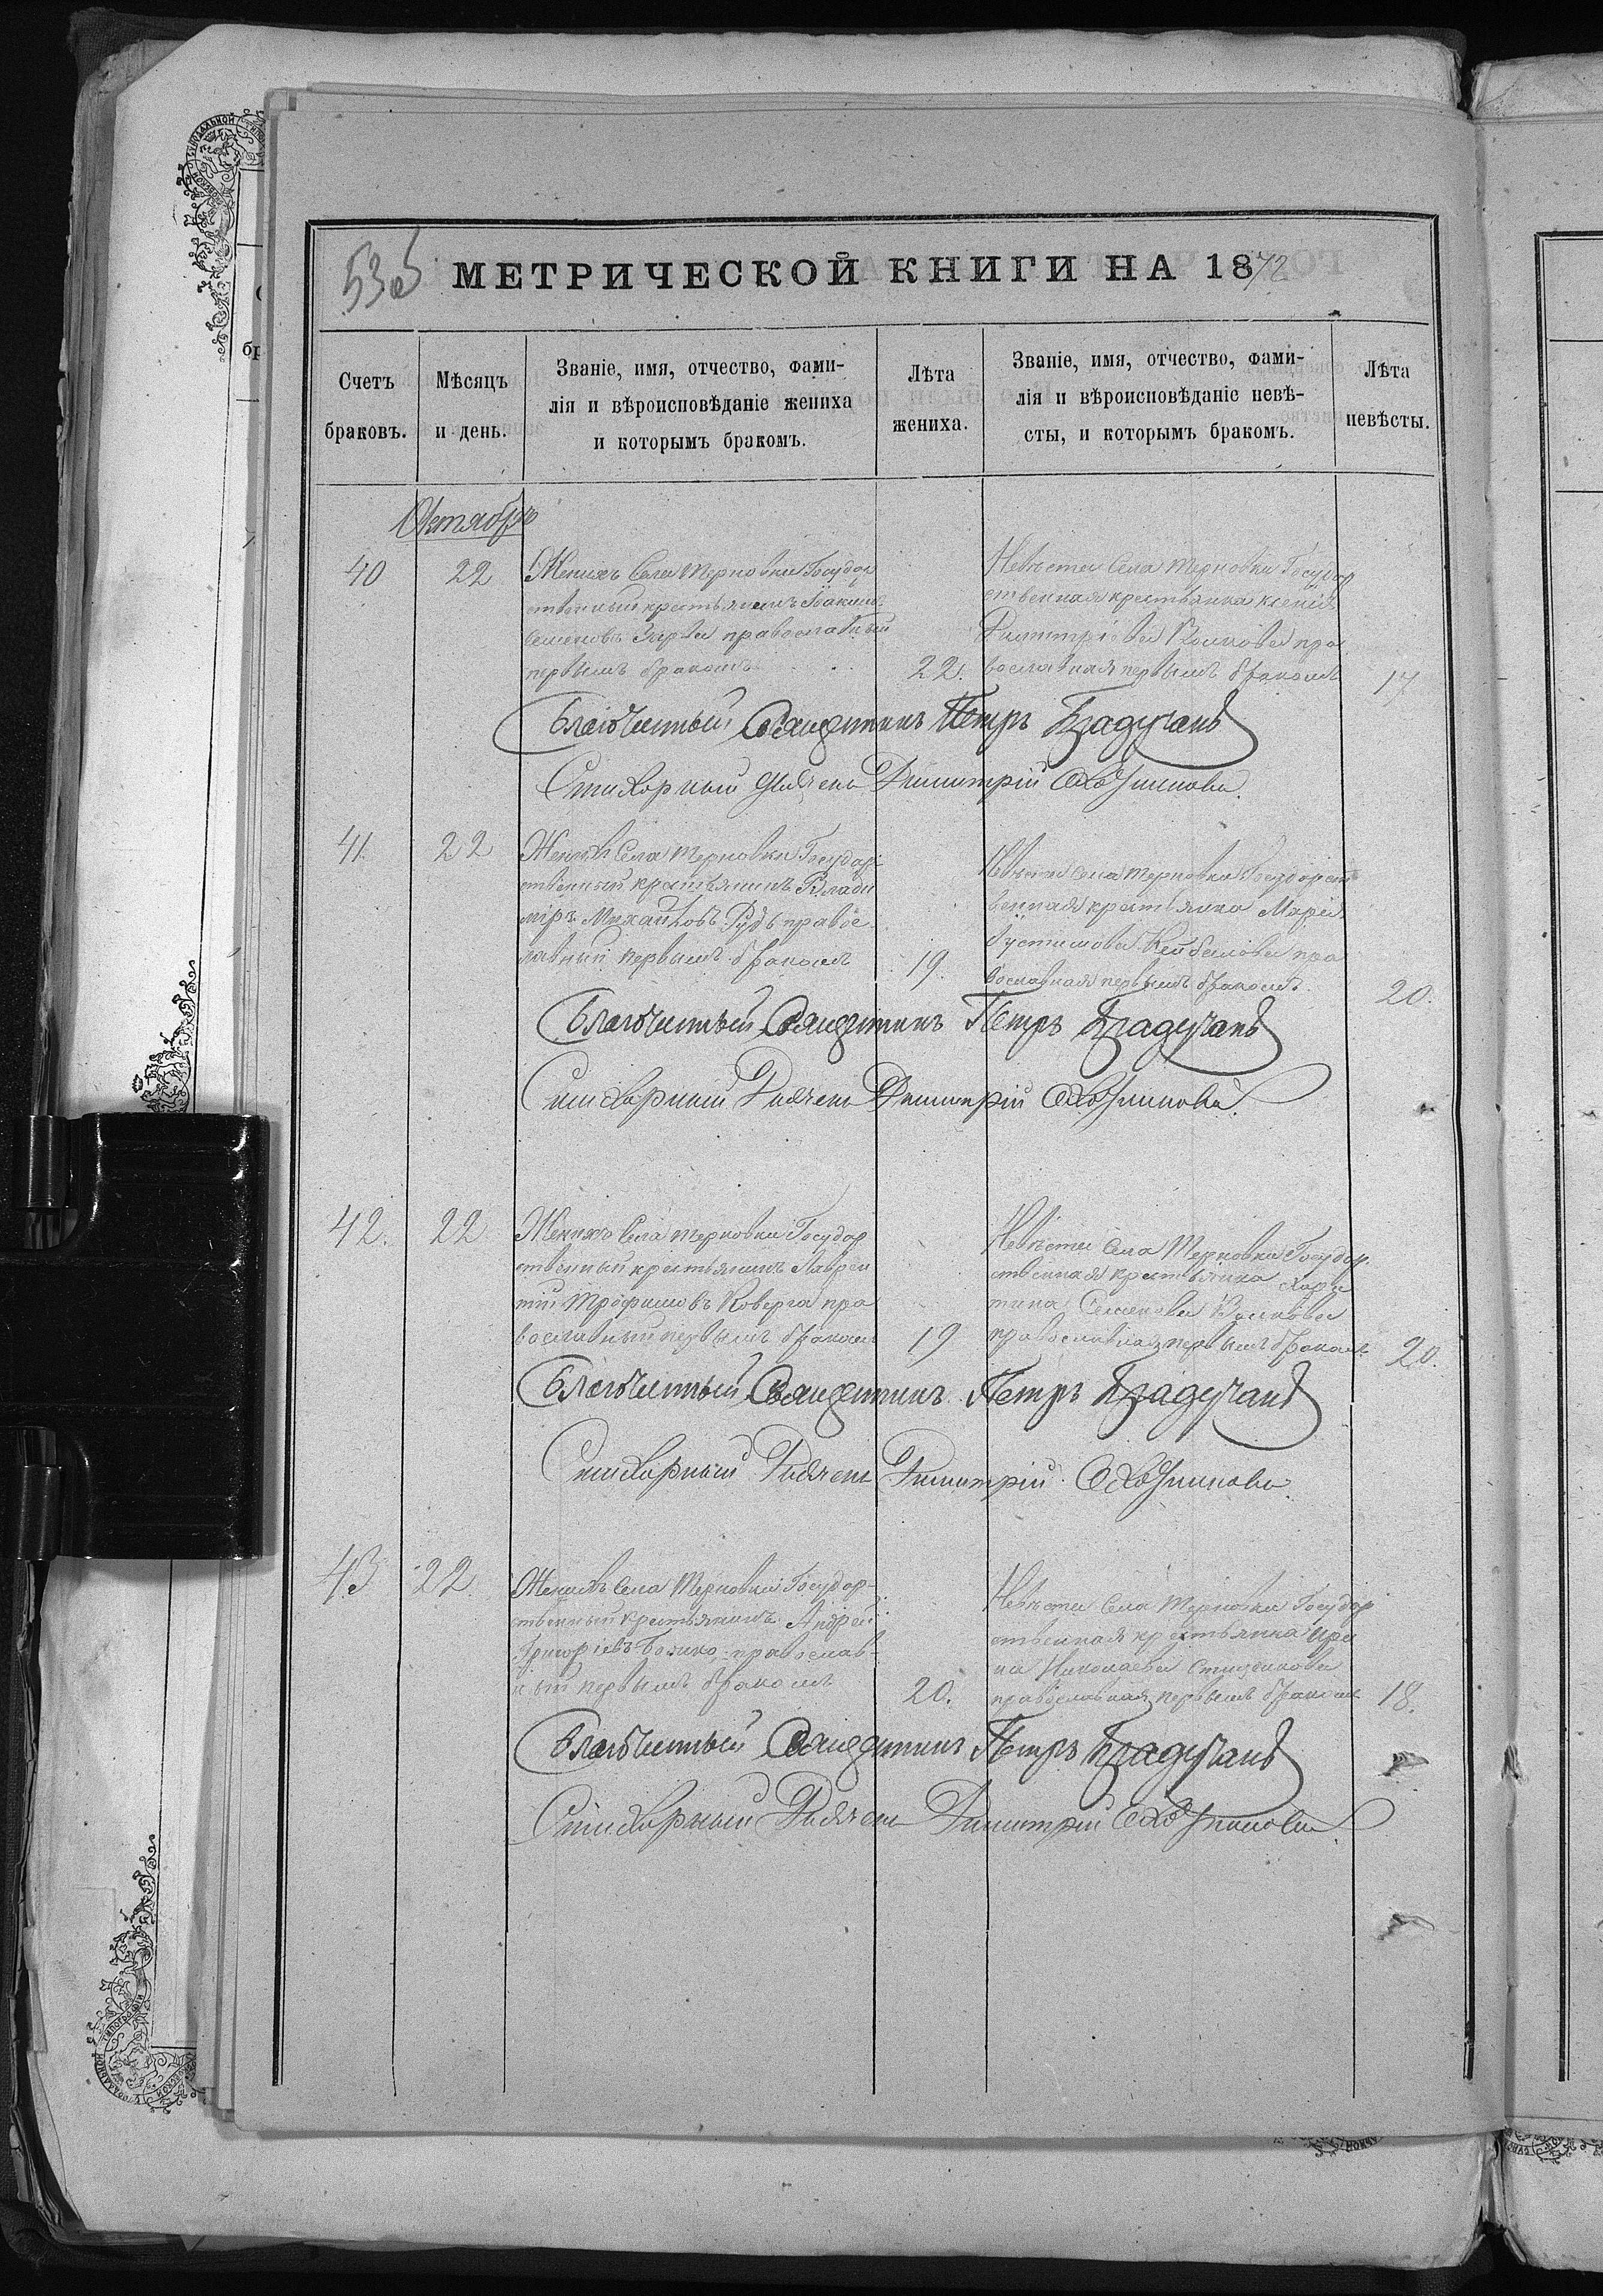 53об
МЕТРИЧЕСКОЙ КНИГИ НА 1872
Счетъ браковъ.
Мѣсяцъ и день.
Званіе, имя, отчество, фами-
лія и вѣроисповѣданіе жениха
и которымъ бракомъ.
Лѣта жениха.
Званіе, имя, отчество, фами-
лія и вѣроисповѣданіе невѣ-
сты, и которымъ бракомъ.
Лѣта невѣсты.
Октябрь
40
22
Женихъ Села Терновки Государ
ственный крестьянинъ Іоакимъ
Семеновъ православный
первымъ бракомъ
22.
Невѣста Села Терновки Государ
ственная крестьянка Ксенія
Димитріева Волкова пра
вославная первымъ бракомъ
17
Благочинный Священникъ Петръ Брадучанъ
Стихарный Дьячекъ Димитрій
41.
22
Женихъ Села Терновки Государ
ственный крестьянинъ Влади
міръ Михайловъ Рудь правос
лавный первымъ бракомъ
19.
Невѣста Села Терновки Государст
венная крестьянка Марія
Іустимова пра
вославная первымъ бракомъ.
20.
Благочинный Священникъ Петръ Брадучанъ
Стихарный Дьячекъ Димитрій
42.
22
Женихъ Села Терновки Государ
ственный крестьянинъ Лаврен
тій Трофимовъ Коверга пра
вославный первымъ бракомъ
19
Невѣста Села Терновки Государ
ственная крестьянка Хари
тина Семенова Волкова
православная первымъ бракомъ
20.
Благочинный Священникъ Петръ Брадучанъ
Стихарный Дьячекъ Димитрій
43
22
Женихъ Села Терновки Государ-
ственный крестьянинъ Андрей
Григоріевъ Бойко православ-
ный первымъ бракомъ
20.
Невѣста Села Терновки Государ
ственная крестьянка Ири
на Николаева
православная первымъ бракомъ
18.
Благочинный Священникъ Петръ Брадучанъ
Стихарный Дьячекъ Димитрій